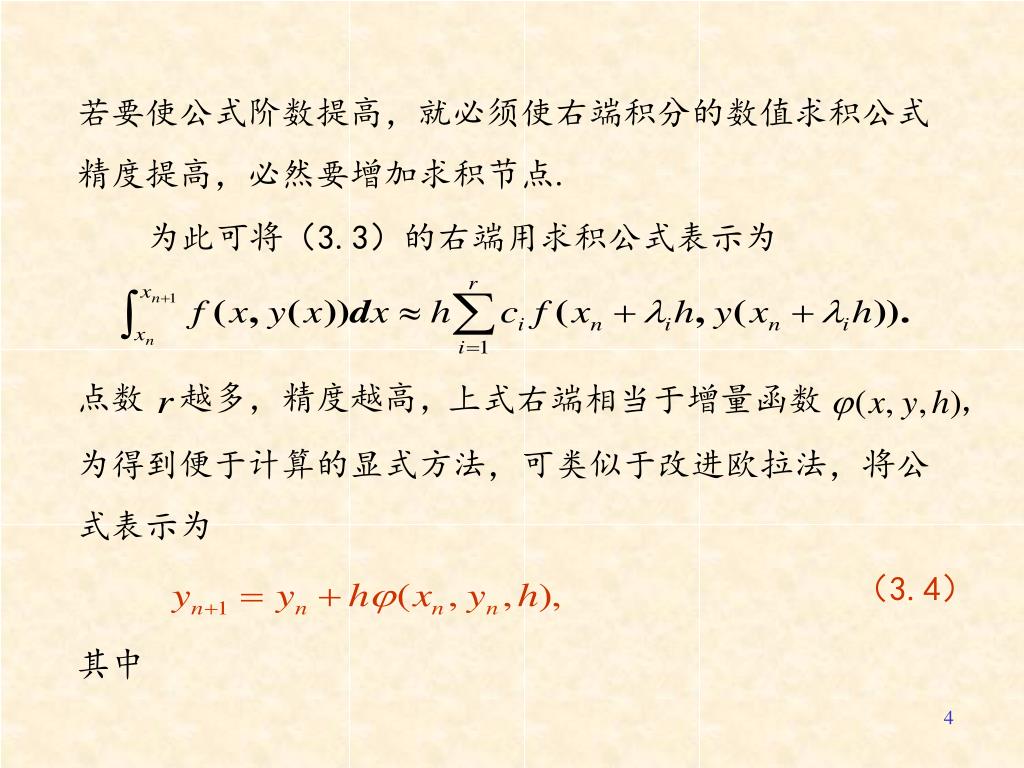 若要使公式阶数提高，就必须使右端积分的数值求积公式
精度提高，必然要增加求积节点.
为此可将（3.3）的右端用求积公式表示为
$\int_{x_n}^{x_{n+1}} f(x, y(x))dx \approx h\sum_{i=1}^{r} c_i f(x_n + \lambda_i h, y(x_n + \lambda_i h)).$
点数 r 越多，精度越高，上式右端相当于增量函数 $\varphi(x, y, h)$，
为得到便于计算的显式方法，可类似于改进欧拉法，将公
式表示为
$y_{n+1} = y_n + h\varphi(x_n, y_n, h),$ （3.4）
其中
4